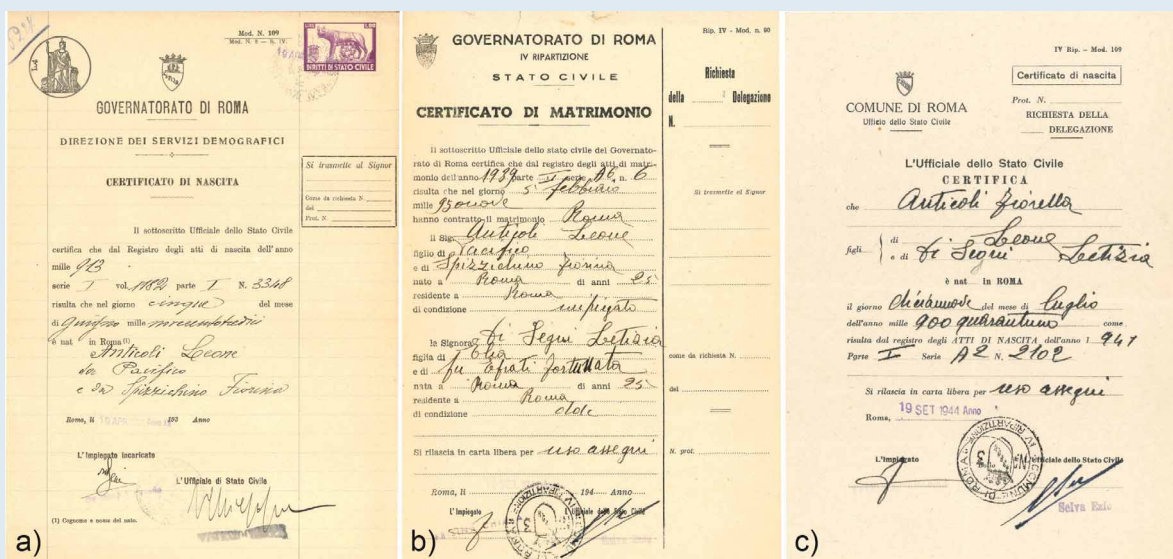 Mod. N. 109
LIRE
DIRITTI DI STATO CIVILE
GOVERNATORATO DI ROMA
DIREZIONE DEI SERVIZI DEMOGRAFICI
CERTIFICATO DI NASCITA
Si trasmette al Signor
Come da richiesta N.
del
Prot. N.
Il sottoscritto Ufficiale dello Stato Civile
certifica che dal Registro degli atti di nascita dell'anno
mille 913
serie I vol. 1182 parte I N. 3348
risulta che nel giorno cinque del mese
di Giugno mille novecentotredici
è nat in Roma (1)
Anticoli Leone
da Pacifico
e da Spizzichino Fiorina
Roma, li 193 Anno
L'Impiegato incaricato
L'Ufficiale di Stato Civile
(1) Cognome e nome del nato.
a)
GOVERNATORATO DI ROMA
IV RIPARTIZIONE
STATO CIVILE
CERTIFICATO DI MATRIMONIO
Rip. IV - Mod. n. 80
Richiesta
della Delegazione
N.
Il sottoscritto Ufficiale dello stato civile del Governato-
rato di Roma certifica che dal registro degli atti di matri-
monio dell'anno 1939 parte II serie n. 6
risulta che nel giorno 5 febbraio
mille 93nove
hanno contratto il matrimonio Roma
il Sig. Anticoli Leone
figlio di Pacifico
e di Spizzichino Fiorina
nato a Roma di anni 25
residente a Roma
di condizione impiegato
la Signora Di Segni Letizia
figlia di Elia
e di fu Efrati Fortunata
nata a Roma di anni 25
residente a Roma
di condizione
Si rilascia in carta libera per uso assegni
Roma, li 194 Anno
L'Impiegato
L'Ufficiale dello Stato Civile
Si trasmette al Signor
come da richiesta N.
del
N. prot.
b)
IV Rip. - Mod. 109
Certificato di nascita
Prot. N.
RICHIESTA DELLA
DELEGAZIONE
COMUNE DI ROMA
Ufficio dello Stato Civile
L'Ufficiale dello Stato Civile
CERTIFICA
che Anticoli Fiorella
figli di Leone
e di Di Segni Letizia
è nat in ROMA
il giorno diciannove del mese di luglio
dell'anno mille 900 quarantuno come
risulta dal registro degli ATTI DI NASCITA dell'anno 1941
Parte I Serie A2 N. 2102
Si rilascia in carta libera per uso assegni
Roma, 19 SET 1944 Anno
L'Impiegato
L'Ufficiale dello Stato Civile
COMUNE DI ROMA
IV RIPARTIZIONE
Selva Ezio
c)